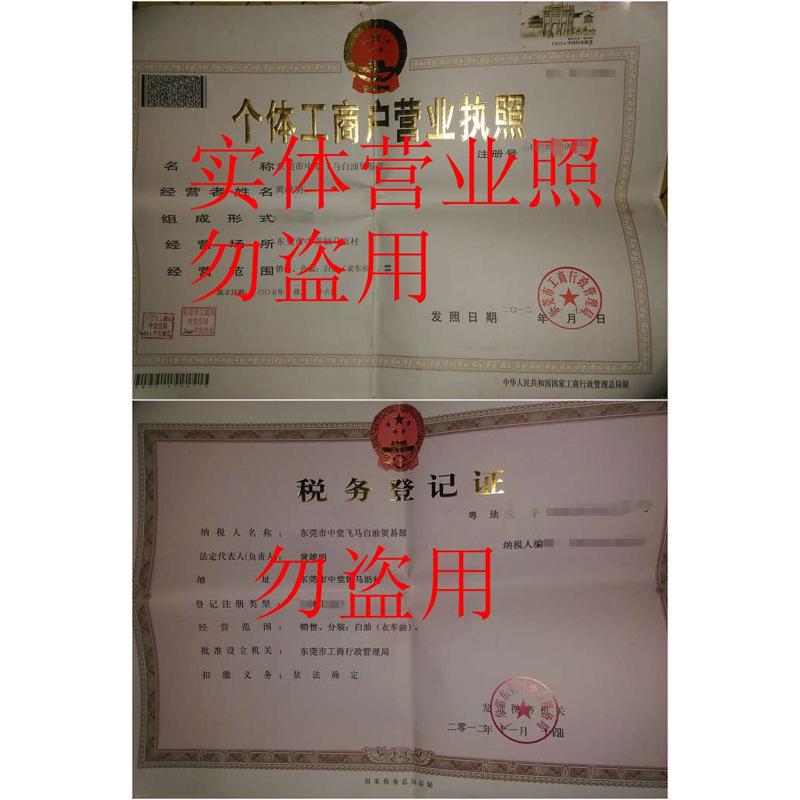 个体工商户营业执照
注册号
名称 东莞市中堂飞马白油贸易部
经营者姓名 黄雄明
组成形式
经营场所 东莞市中堂镇马沥村
经营范围 销售、分装:白油(衣车油)。
成立日期:二〇〇五年
实体营业照
勿盗用
东莞市工商行政管理局
发照日期 二〇一二年 月 日
中华人民共和国国家工商行政管理总局制
税务登记证
粤地 字
纳税人编
纳税人名称: 东莞市中堂飞马白油贸易部
法定代表人(负责人: 黄雄明
地址 东莞市中堂镇马沥村
登记注册类型:
经营范围: 销售、分装:白油(衣车油)。
批准设立机关: 东莞市工商行政管理局
扣缴义务: 依法确定
勿盗用
发证税务机关
二〇一二年十一月十四日
国家税务总局监制